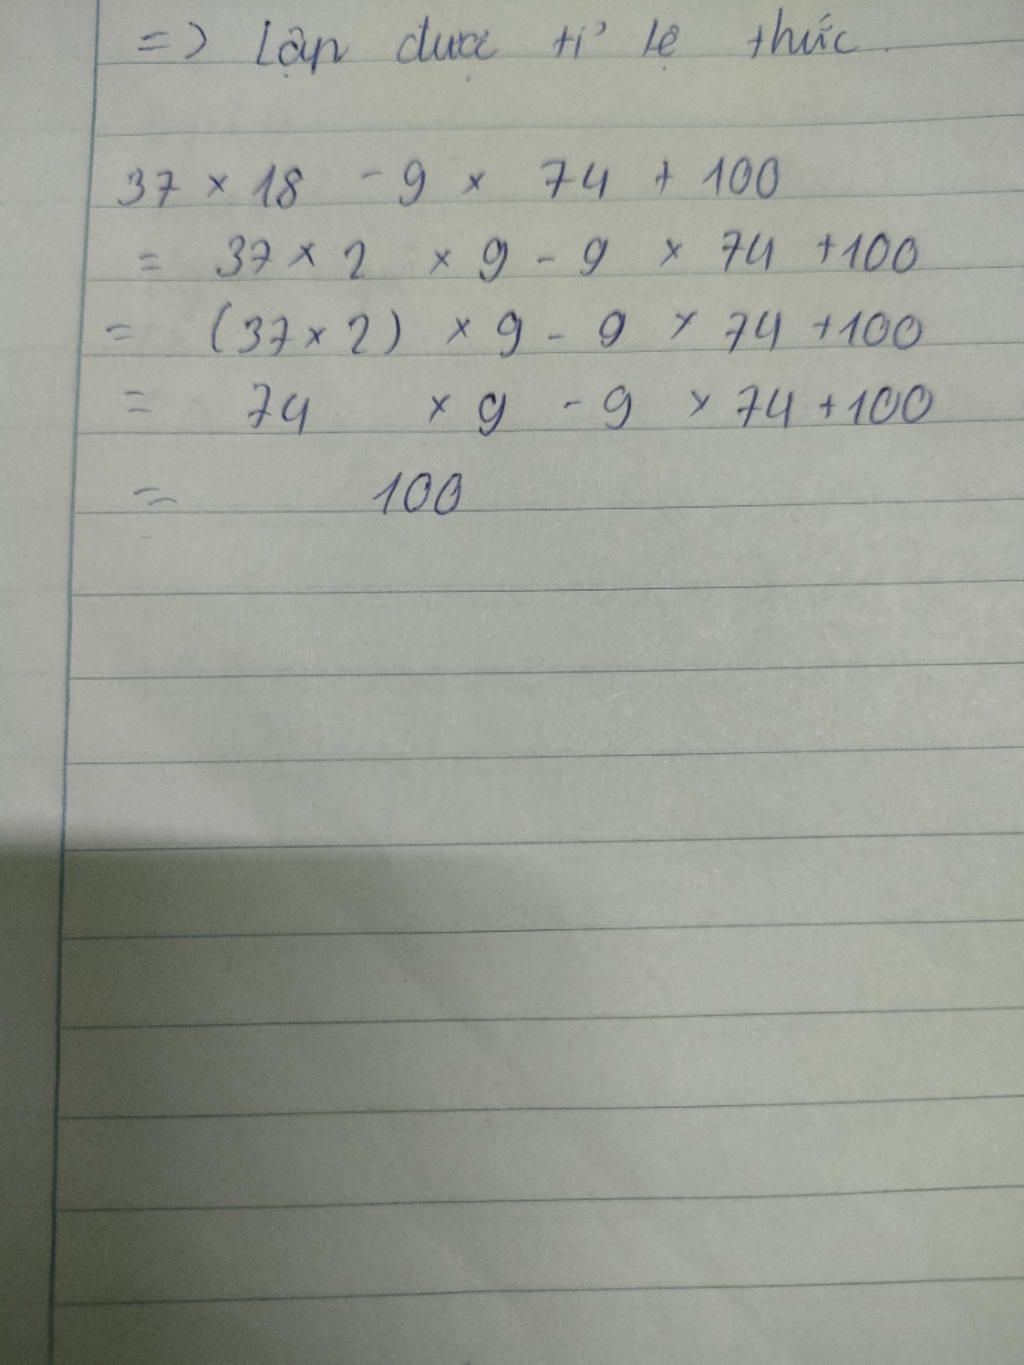 => Lập được tỉ lệ thức
37 × 18 - 9 × 74 + 100
= 37 × 2 × 9 - 9 × 74 + 100
= (37 × 2) × 9 - 9 × 74 + 100
= 74 × 9 - 9 × 74 + 100
= 100